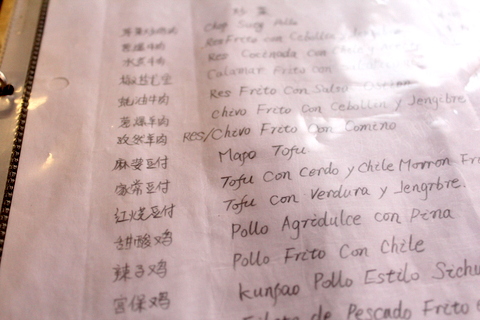 Chop Suey Pollo
葱爆牛肉 Res Frito con Cebolla
水煮牛肉 Res Cocinada con
椒盐 Calamar Frito con
蚝油牛肉 Res Frito Con Salsa
葱爆羊肉 Chivo Frito Con Cebollin y Jengibre
孜然羊肉 Res/Chivo Frito Con Comino
麻婆豆付 Mapo Tofu
家常豆付 Tofu Con Cerdo y Chile Morron
红烧豆付 Tofu Con Verdura y Jengibre.
甜酸鸡 Pollo Agridulce con Pina
辣子鸡 Pollo Frito Con Chile
宫保鸡 Kunpao Pollo Estilo
de Pescado Frito